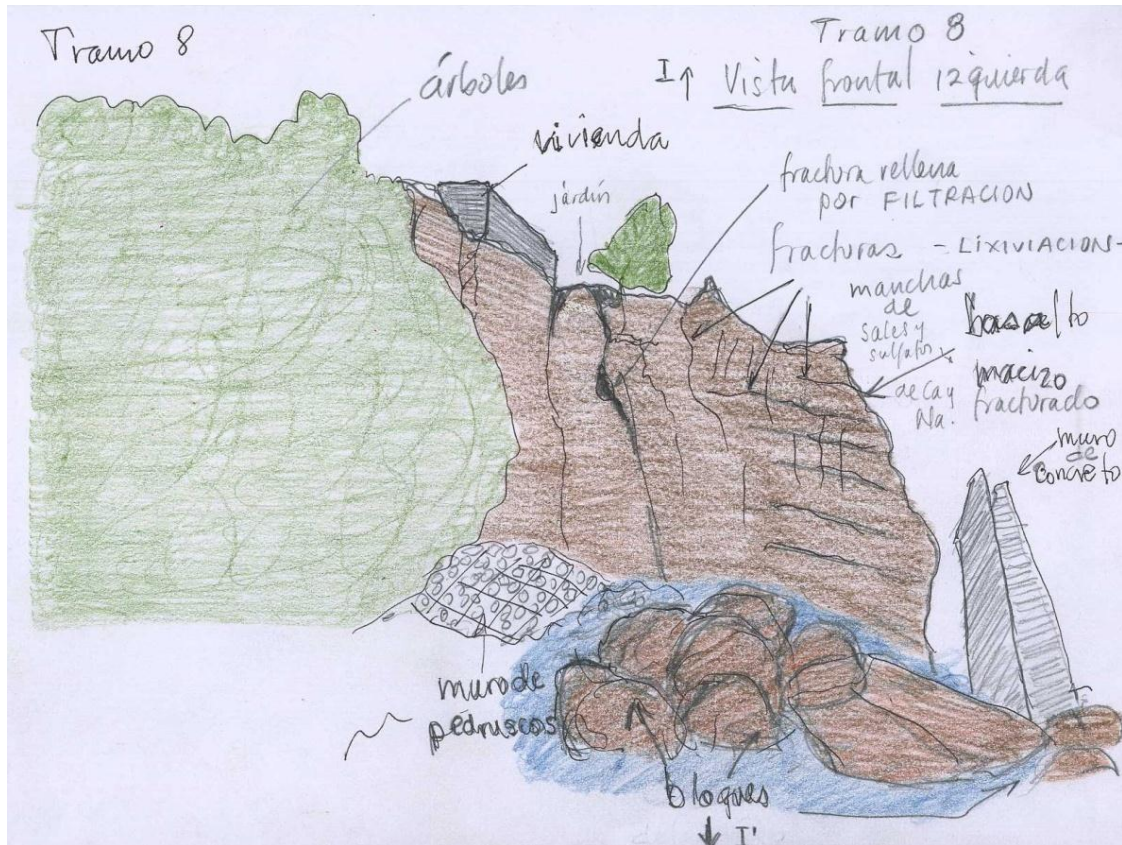 Tramo 8
Tramo 8
I↑ Vista frontal izquierda
árboles
vivienda
járdín
fractura rellena
por FILTRACION
fracturas - LIXIVIACION-
manchas
de
sales y
sulfatos
de Ca y
Na.
basalto
macizo
fracturado
muro
de
concreto
muro de
pedruscos
bloques
↓ I'